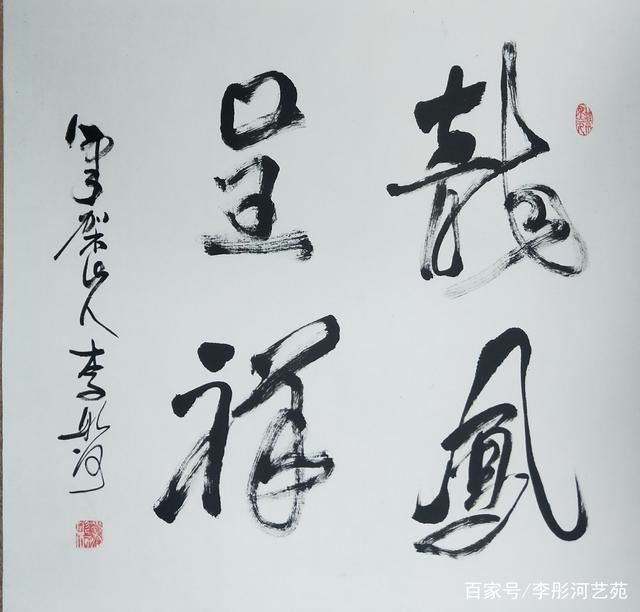 龍鳳
呈祥
筆架山人李彤河
百家号/李彤河艺苑